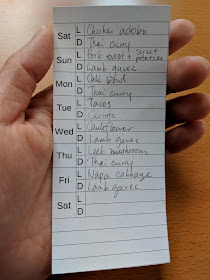 Sat L Chicken adobo
D Thai curry
Sun L Pork roast + sweet potatoes
D Lamb guvec
Mon L
D Thai curry
Tue L Tacos
D
Wed L Cauliflower
D Lamb guvec
Thu L Leek mushroom
D Thai curry
Fri L Napa cabbage
D Lamb guvec
Sat L
D